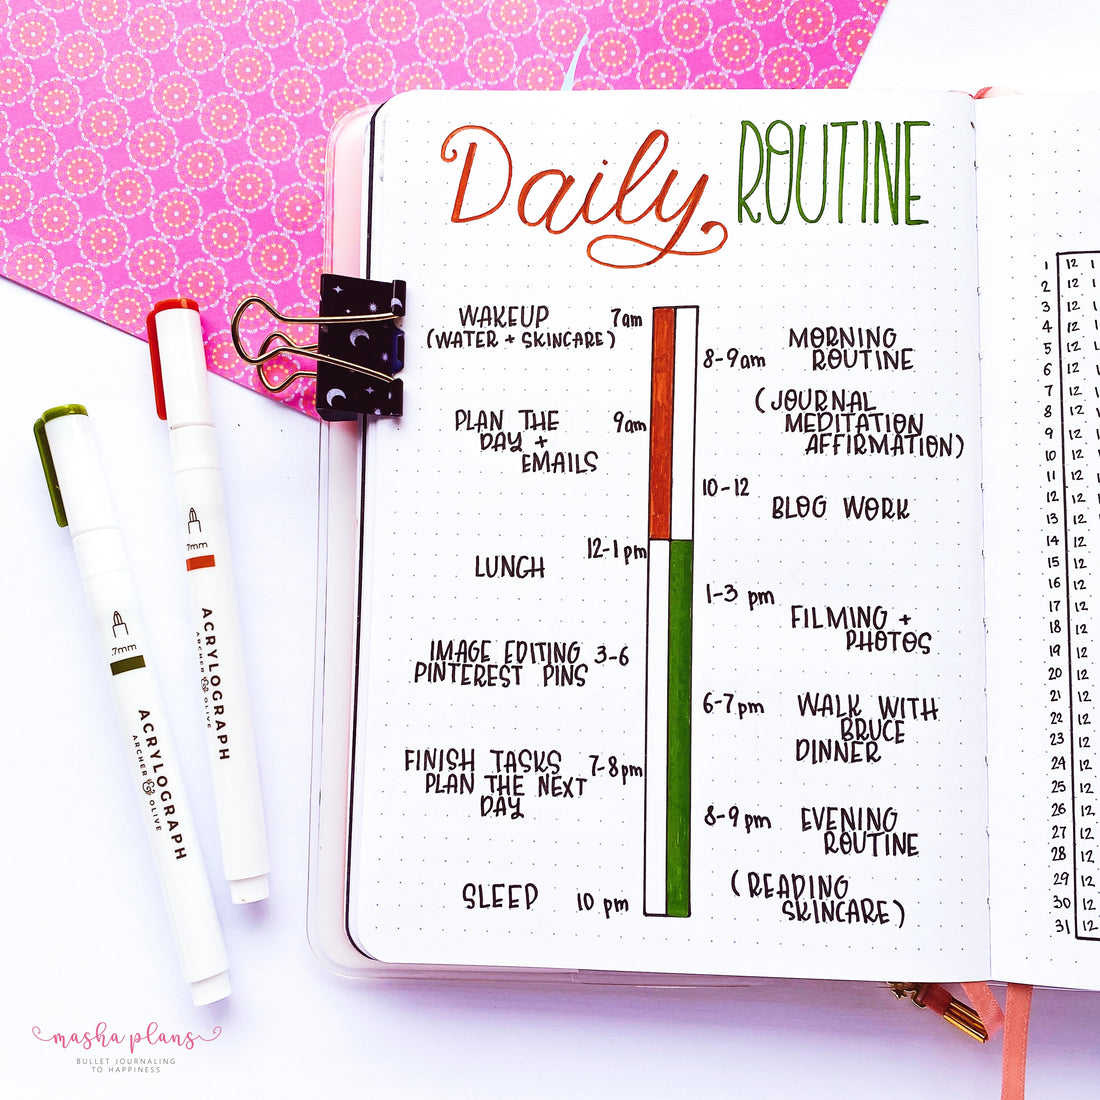 Daily ROUTINE
WAKEUP 7am
(WATER + SKINCARE)
8-9am MORNING
ROUTINE
(JOURNAL
MEDITATION
AFFIRMATION)
PLAN THE 9am
DAY +
EMAILS
10-12 BLOG WORK
12-1pm
LUNCH
1-3 pm FILMING +
PHOTOS
IMAGE EDITING 3-6
PINTEREST PINS
6-7pm WALK WITH
BRUCE
DINNER
FINISH TASKS 7-8pm
PLAN THE NEXT
DAY
8-9pm EVENING
ROUTINE
(READING
SKINCARE)
SLEEP 10 pm
1 12 1
2 12 1
3 12 1
4 12 1
5 12 1
6 12 1
7 12 1
8 12 1
9 12 1
10 12 1
11 12 1
12 12 1
13 12
14 12
15 12
16 12
17 12
18 12
19 12
20 12
21 12
22 12
23 12
24 12
25 12
26 12
27 12
28 12
29 12
30 12
31 12
.7mm
ACRYLOGRAPH
ARCHER & OLIVE
7mm
ACRYLOGRAPH
ARCHER & OLIVE
masha plans
BULLET JOURNALING
TO HAPPINESS